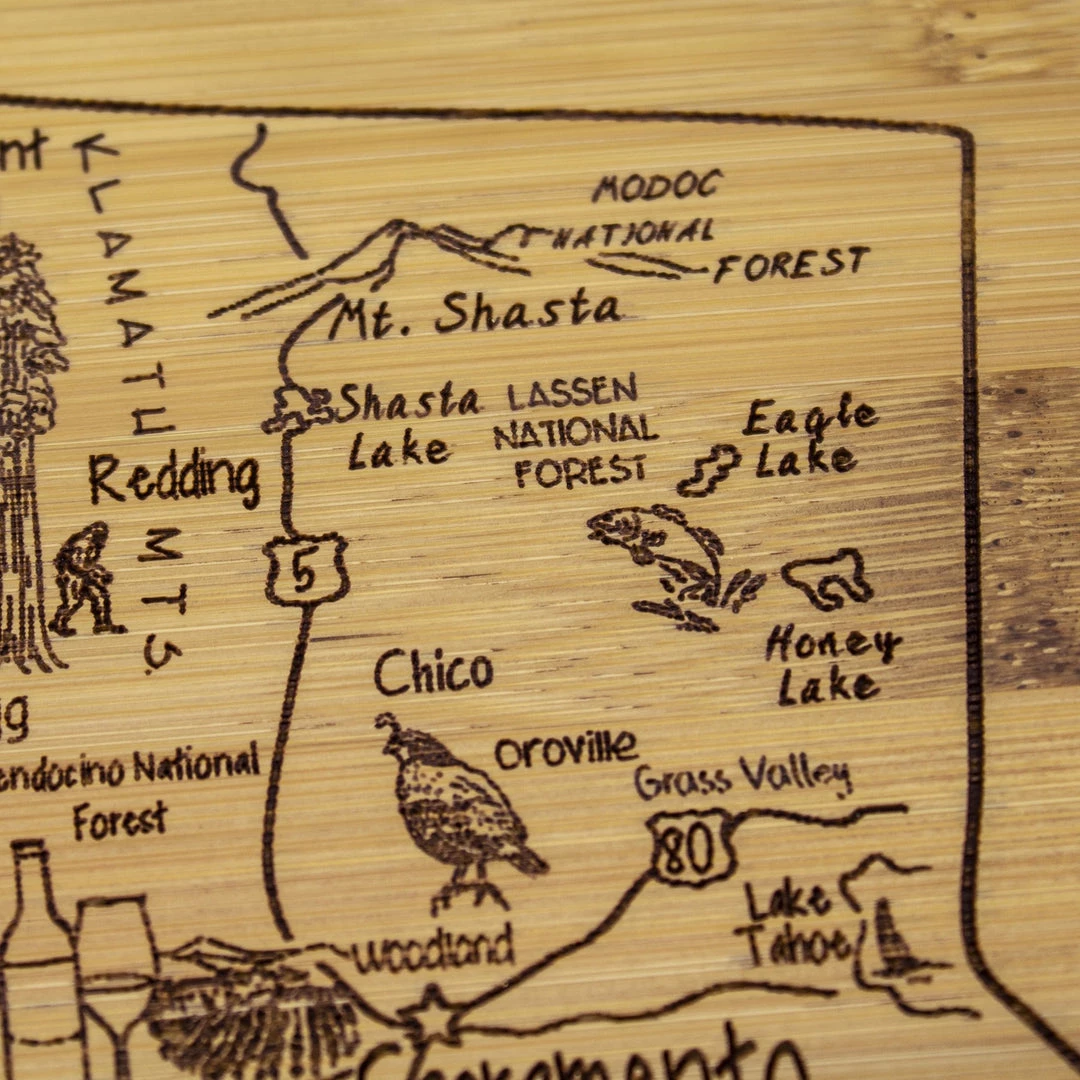 nt
KLAMATH MTS.
MODOC
NATIONAL
FOREST
Mt. Shasta
Shasta
Lake
LASSEN
NATIONAL
FOREST
Eagle
Lake
Redding
5
Honey
Lake
Chico
Oroville
endocino National
Forest
Grass Valley
80
Lake
Tahoe
Woodland
Sacramento